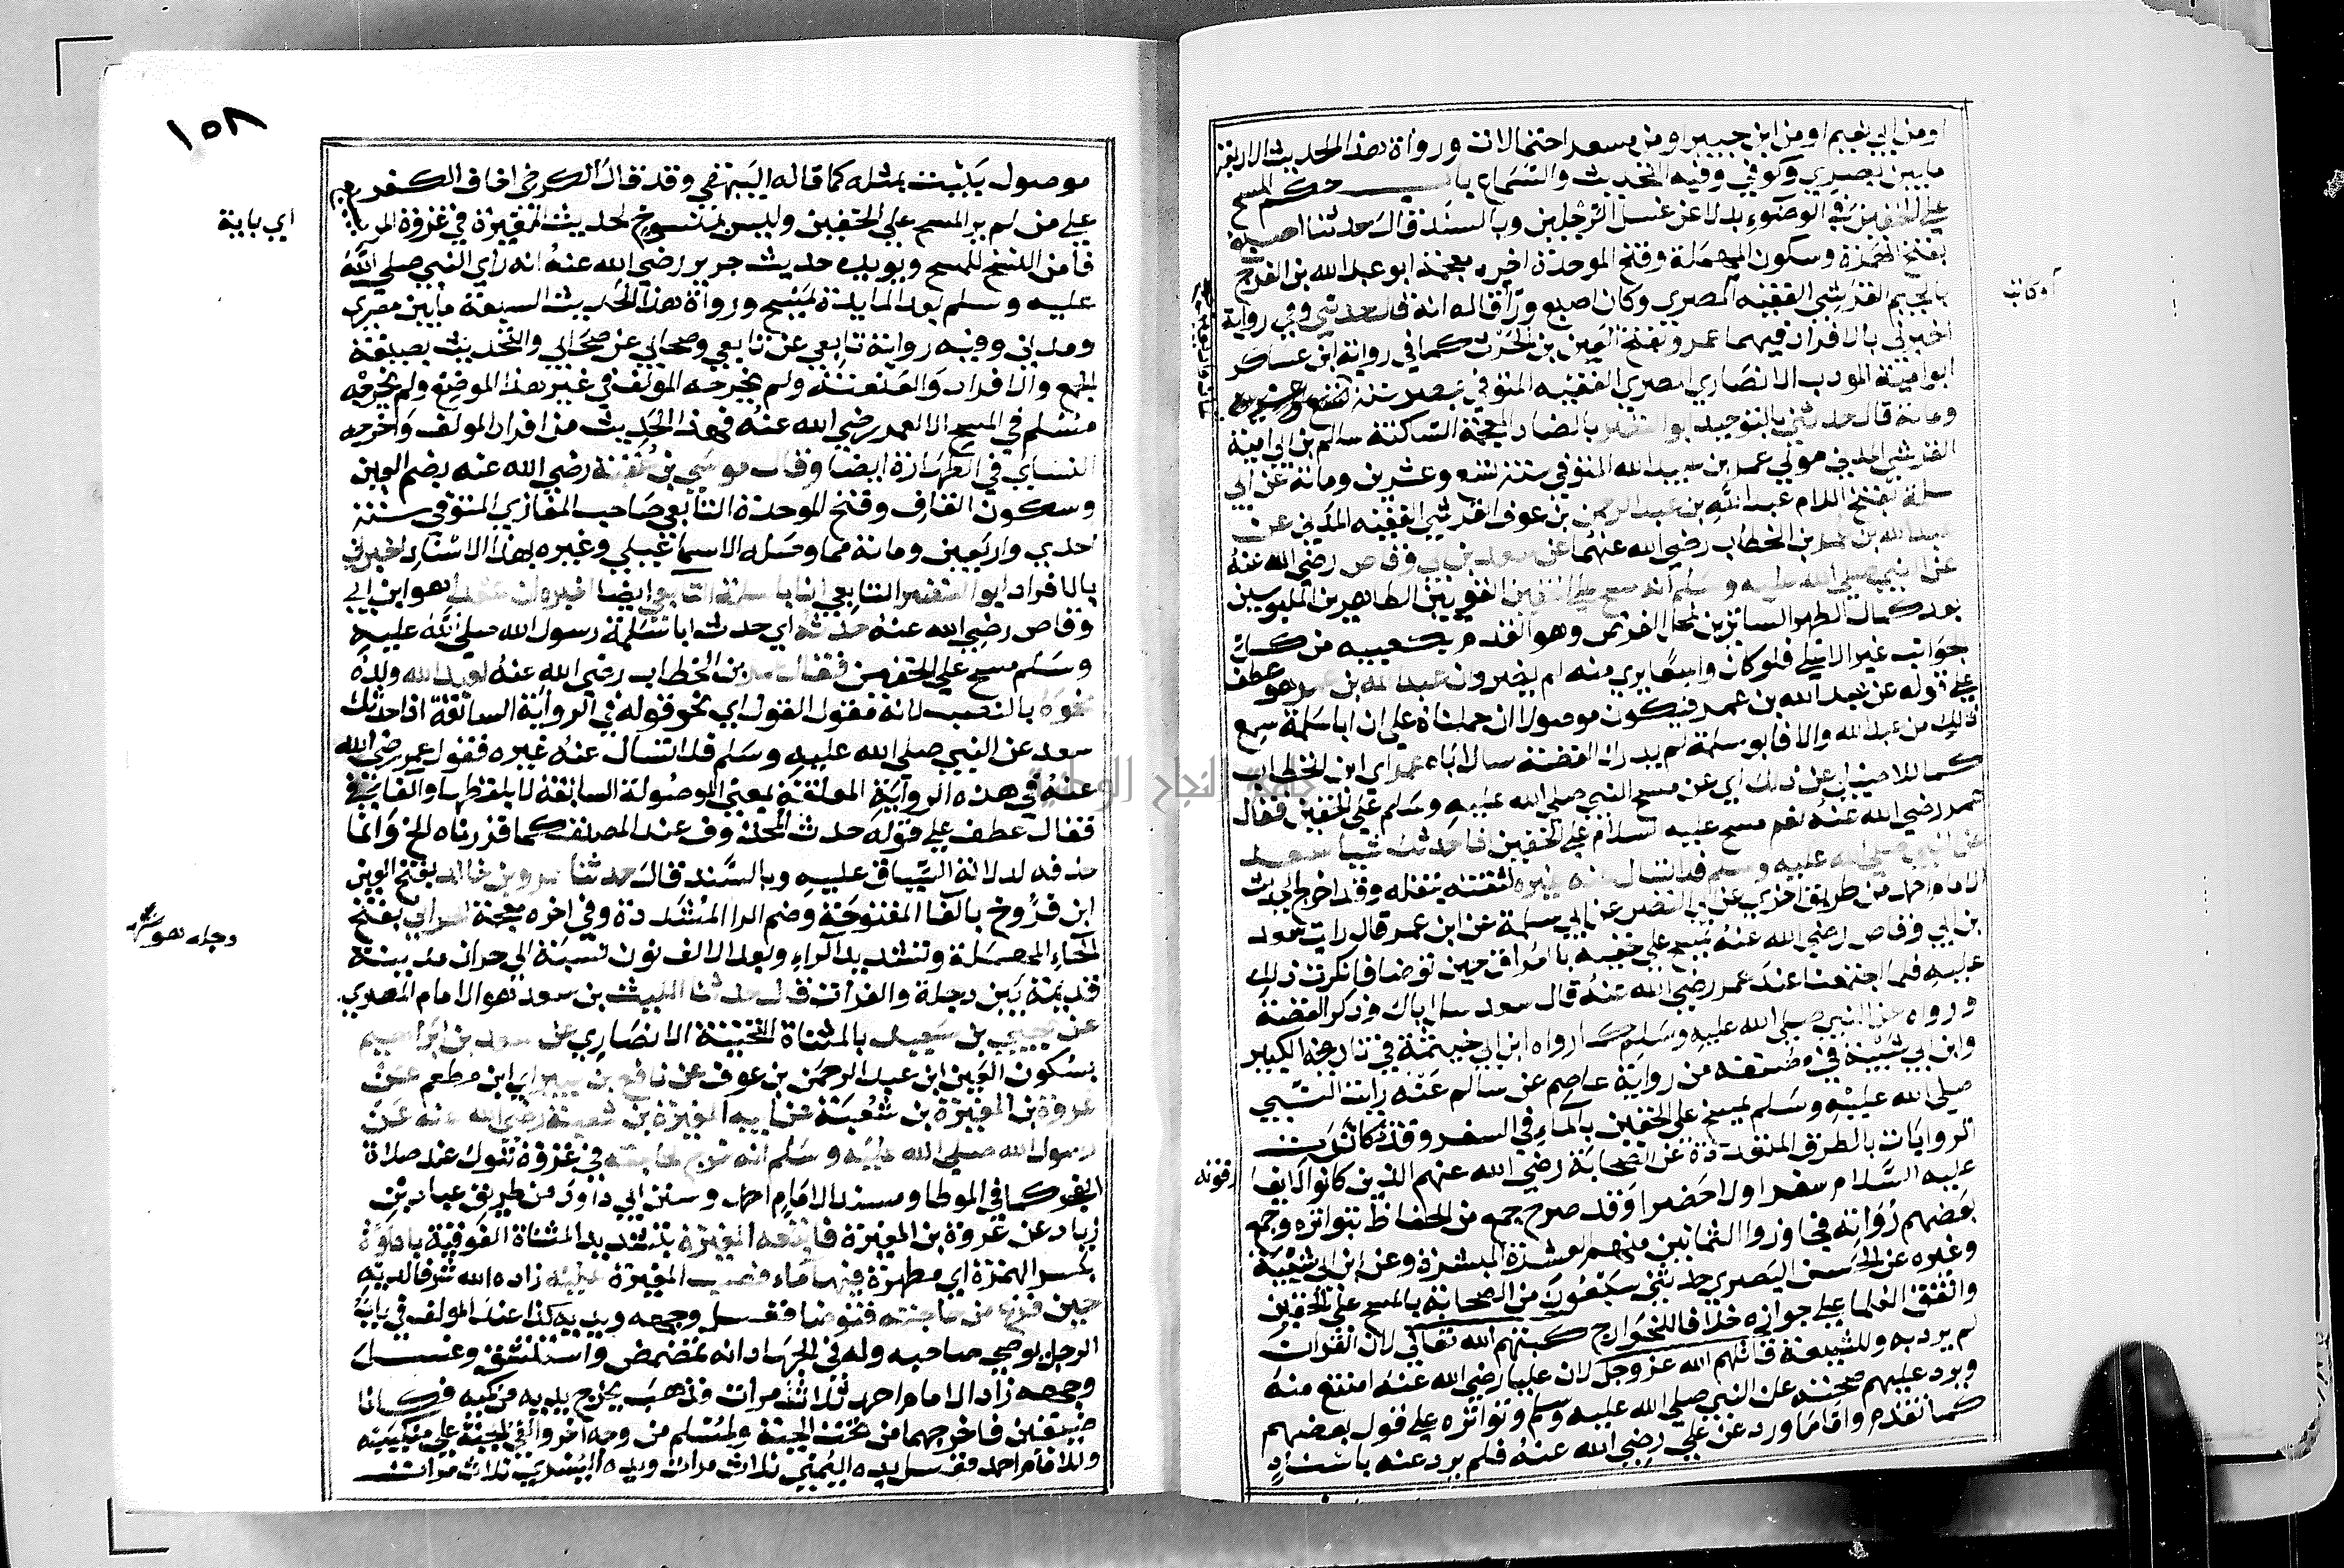 او من ابي نعيم او من ابن جبير او من مسعر احتمالات ورواة هذا الحديث الاربعة
ما بين بصري وكوفي وفيه التحديث والسماع باب حكم المسح
علي الخفين في الوضوء بدلا عن غسل الرجلين وبالسند قال حدثنا اصبغ
بفتح الهمزة وسكون المهملة وفتح الموحدة اخره معجمة ابو عبد الله بن الفرج
بالجيم القرشي الفقيه المصري وكان اصبغ وراقا له انه قال حدثني وفي رواية
اخبرني بالافراد فيهما عمرو بفتح العين بن الحرث كما في رواية ابن عساكر
ابو امية المودب الانصاري المصري الفقيه المتوفي بمصر سنة
وماية قال حدثني بالتوحيد ابو النضر بالضاد المعجمة الساكنة سالم بن ابي امية
القرشي المدني مولي عمر بن عبيد الله المتوفي سنة تسع وعشرين وماية عن ابي
سلمة بفتح اللام عبد الله بن عبد الرحمن بن عوف القرشي الفقيه المدني عن
عبد الله بن عمر بن الخطاب رضي الله عنهما عن سعد بن ابي وقاص رضي الله عنه
عن النبي صلي الله عليه وسلم انه مسح علي الخفين القويين الطاهرين الملبوسين
بعد كمال الطهر الساترين لمحل الفرض وهو القدم بكعبيه من كل
الجوانب غير الاعلي فلو كان واسعا يري منه لم يضر وان عبد الله بن عمر هو عطف
علي قوله عن عبد الله بن عمر فيكون موصولا ان حملناه علي ان ابا سلمة سمع
ذلك من عبد الله والا فابو سلمة لم يدرك القصة سال اباه عمر اي ابن الخطاب
كما للاصيلي عن ذلك اي عن مسح النبي صلي الله عليه وسلم علي الخفين فقال
عمر رضي الله عنه نعم مسح عليه السلام علي الخفين اذا حدثك شيا سعد
عن النبي صلي الله عليه وسلم فلا تسال عنه غيره لثقته بنقله وقد اخرج الحديث
الامام احمد من طريق اخري عن ابي النضر عن ابي سلمة عن ابن عمر قال رايت سعد
بن ابي وقاص رضي الله عنه يمسح علي خفيه بالعراق حين توضا فانكرت ذلك
عليه فلما اجتمعنا عند عمر رضي الله عنه قال سعد سل اباك فذكر القصة
ورواه عن النبي صلي الله عليه وسلم كما رواه ابن ابي خيثمة في تاريخه الكبير
وابن ابي شيبة في مصنفه من رواية عاصم عن سالم عنه رايت النبي
صلي الله عليه وسلم يمسح علي الخفين بالماء في السفر وقد تكاثرت
الروايات بالطرق المتعددة عن الصحابة رضي الله عنهم الذين كانوا لا
عليه السلام سفرا ولا حضرا وقد صرح جمع من الحفاظ بتواتره وجمع
بعضهم رواته فجاوزوا الثمانين منهم العشرة المبشرة وعن ابن ابي شيبة
وغيره عن الحسن البصري حدثني سبعون من الصحابة بالمسح علي الخفين
واتفق العلما علي جوازه خلافا للخوارج كبتهم الله تعالي لان القران
لم يرد به وللشيعة قاتلهم الله عز وجل لان عليا رضي الله عنه امتنع منه
ويرد عليهم صحته عن النبي صلي الله عليه وسلم وتواتره علي قول بعضهم
كما تقدم واما ما ورد عن علي رضي الله عنه فلم يرد عنه باسناد
١٥٨
موصول يثبت بمثله كما قاله البيهقي وقد قال الكرخي اخاف الكفر
علي من لم ير المسح علي الخفين وليس بمنسوخ لحديث المغيرة في غزوة
فامن النسخ للمسح ويويده حديث جرير رضي الله عنه انه راي النبي صلي الله
عليه وسلم بعد المايدة يمسح ورواة هذا الحديث السبعة ما بين مصري
ومدني وفيه رواية تابعي عن تابعي وصحابي عن صحابي والتحديث بصيغة
الجمع والافراد والعنعنة ولم يخرجه المولف في غير هذا الموضع ولم يخرجه
مسلم في المسح الا لعمر رضي الله عنه فهذا الحديث من افراد المولف واخرجه
النساي في الطهارة ايضا وقال موسي بن عقبة رضي الله عنه بضم العين
وسكون القاف وفتح الموحدة التابعي صاحب المغازي المتوفي سنة
احدي واربعين وماية مما وصله الاسماعيلي وغيره بهذا الاسناد اخبرني
بالافراد ابو النضر التابعي ان ابا سلمة التابعي ايضا اخبره ان سعدا هو ابن ابي
وقاص رضي الله عنه حدثه اي حدث ابا سلمة رسول الله صلي الله عليه
وسلم مسح علي الخفين فقال عمر بن الخطاب رضي الله عنه لعبد الله ولده
نحوه بالنصب لانه مقول القول اي نحو قوله في الرواية السابقة اذا حدثك
سعد عن النبي صلي الله عليه وسلم فلا تسال عنه غيره فقول عمر رضي الله
عنه في هذه الرواية المعلقة بمعني الموصولة السابقة لا بلفظها والفا في
فقال عطف علي قوله حدث المحذوف عند المصنف كما قدرناه الخ وانما
حذفه لدلالة السياق عليه وبالسند قال حدثنا عمرو بن خالد بفتح العين
ابن فروخ بالفا المفتوحة وضم الرا المشددة وفي اخره معجمة الحراني بفتح
الحاء المهملة وتشديد الراء وبعد الالف نون نسبة الي حران مدينة
قديمة بين دجلة والفرات قال حدثنا الليث بن سعد هو الامام المصري
عن يحيي بن سعيد بالمثناة التحتية الانصاري عن سعد بن ابراهيم
بسكون العين ابن عبد الرحمن بن عوف عن نافع بن جبير اي ابن مطعم عن
عروة بن المغيرة بن شعبة عن ابيه المغيرة بن شعبة رضي الله عنه عن
رسول الله صلي الله عليه وسلم انه خرج لحاجته في غزوة تبوك عند صلاة
الفجر كما في الموطا ومسند الامام احمد وسنن ابي داود من طريق عباد بن
زياد عن عروة بن المغيرة فاتبعه المغيرة بتشديد المثناة الفوقية باداوة
بكسر الهمزة اي مطهرة فيها ماء فصب المغيرة عليه زاده الله شرفا لديه
حين فرغ من حاجته فتوضا فغسل وجهه ويديه كذا عند المولف في باب
الرجل يوضي صاحبه وله في الجهاد انه تمضمض واستنشق وغسل
وجهه زاد الامام احمد ثلاث مرات فذهب يخرج يديه من كميه فكانا
ضيقين فاخرجهما من تحت الجبة ولمسلم من وجه اخر والقي الجبة علي منكبيه
وللامام احمد فغسل يده اليمني ثلاث مرات ويده اليسري ثلاث مرات